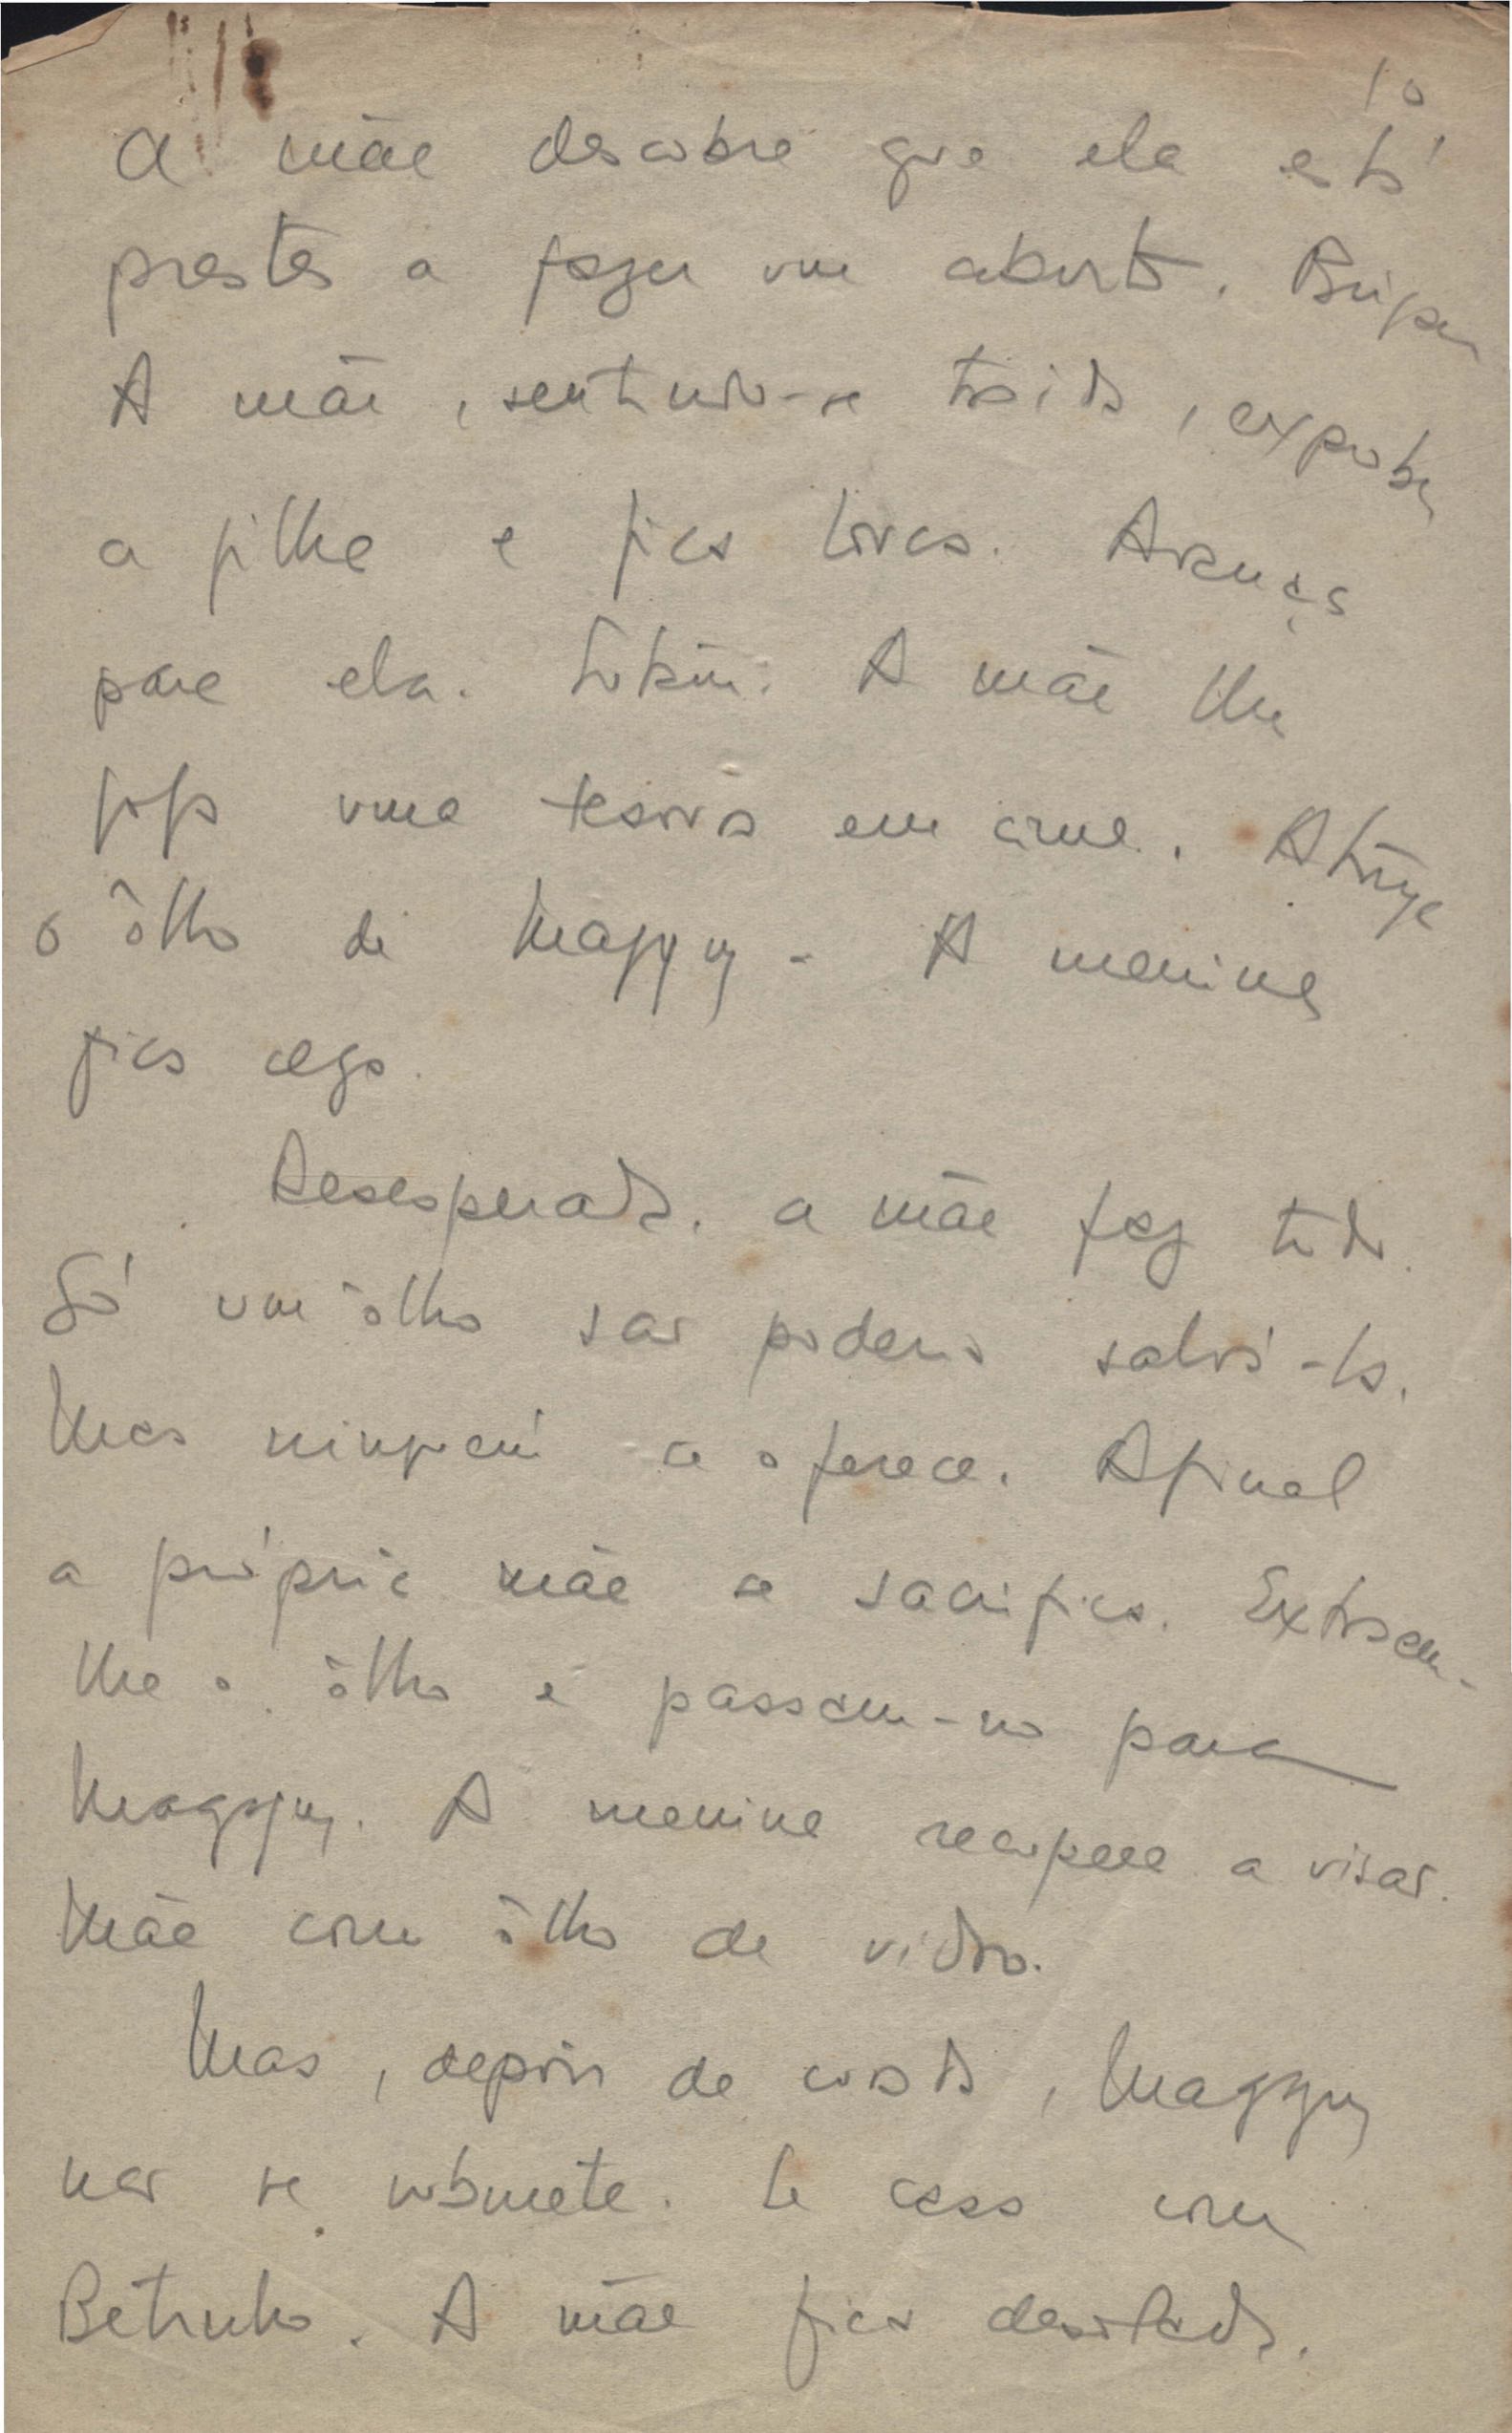 10
A mãe descobre que ela está
prestes a fazer um aborto. Brigam
A mãe, sentindo-se traída, exproba
a filha e fica louca. Avança
para ela. A mãe lhe
joga uma tesoura em cima. Atinge
o ôlho de Maggy. A menina
fica cega.
Desesperada, a mãe faz tudo.
Só um ôlho são poderá salvá-la.
Mas ninguém se oferece. Afinal
a própria mãe se sacrifica. Extraem-
lhe o ôlho e passam-no para
Maggy. A menina recupera a visão.
Mãe com ôlho de vidro.
Mas, depois de curada, Maggy
não se submete. Se casa com
Betinho. A mãe fica desolada.